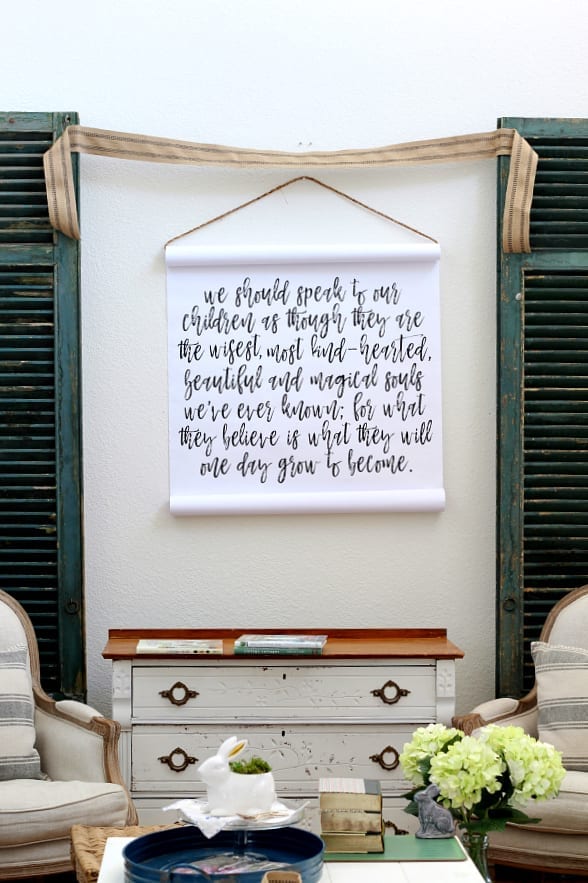 we should speak to our
children as though they are
the wisest, most kind-hearted,
beautiful and magical souls
we've ever known; for what
they believe is what they will
one day grow to become.